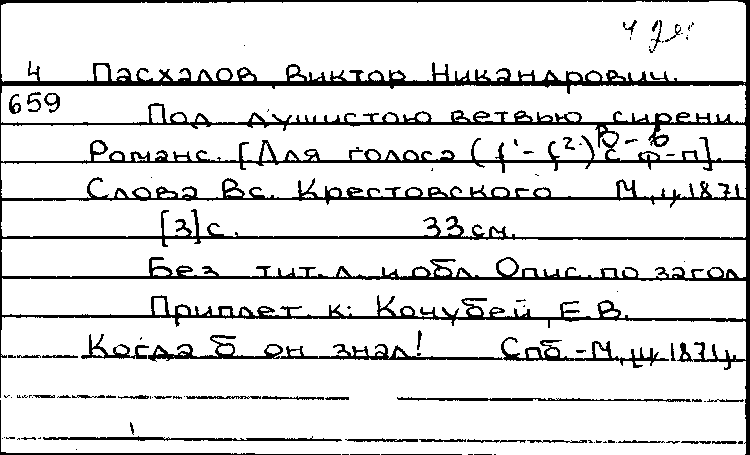 4 Пасхалов, Виктор Никандрович.
659 Под душистою ветвью сирени.
Романс. [Для голоса (f¹-f²) с ф-п].
Слова Вс. Крестовского. М., ц. 1871
[3]с. 33см.
Без тит. л. и обл. Опис. по загол.
Приплет. к: Кочубей, Е.В.
Когда б он знал! Спб.-М., [ц. 1871].